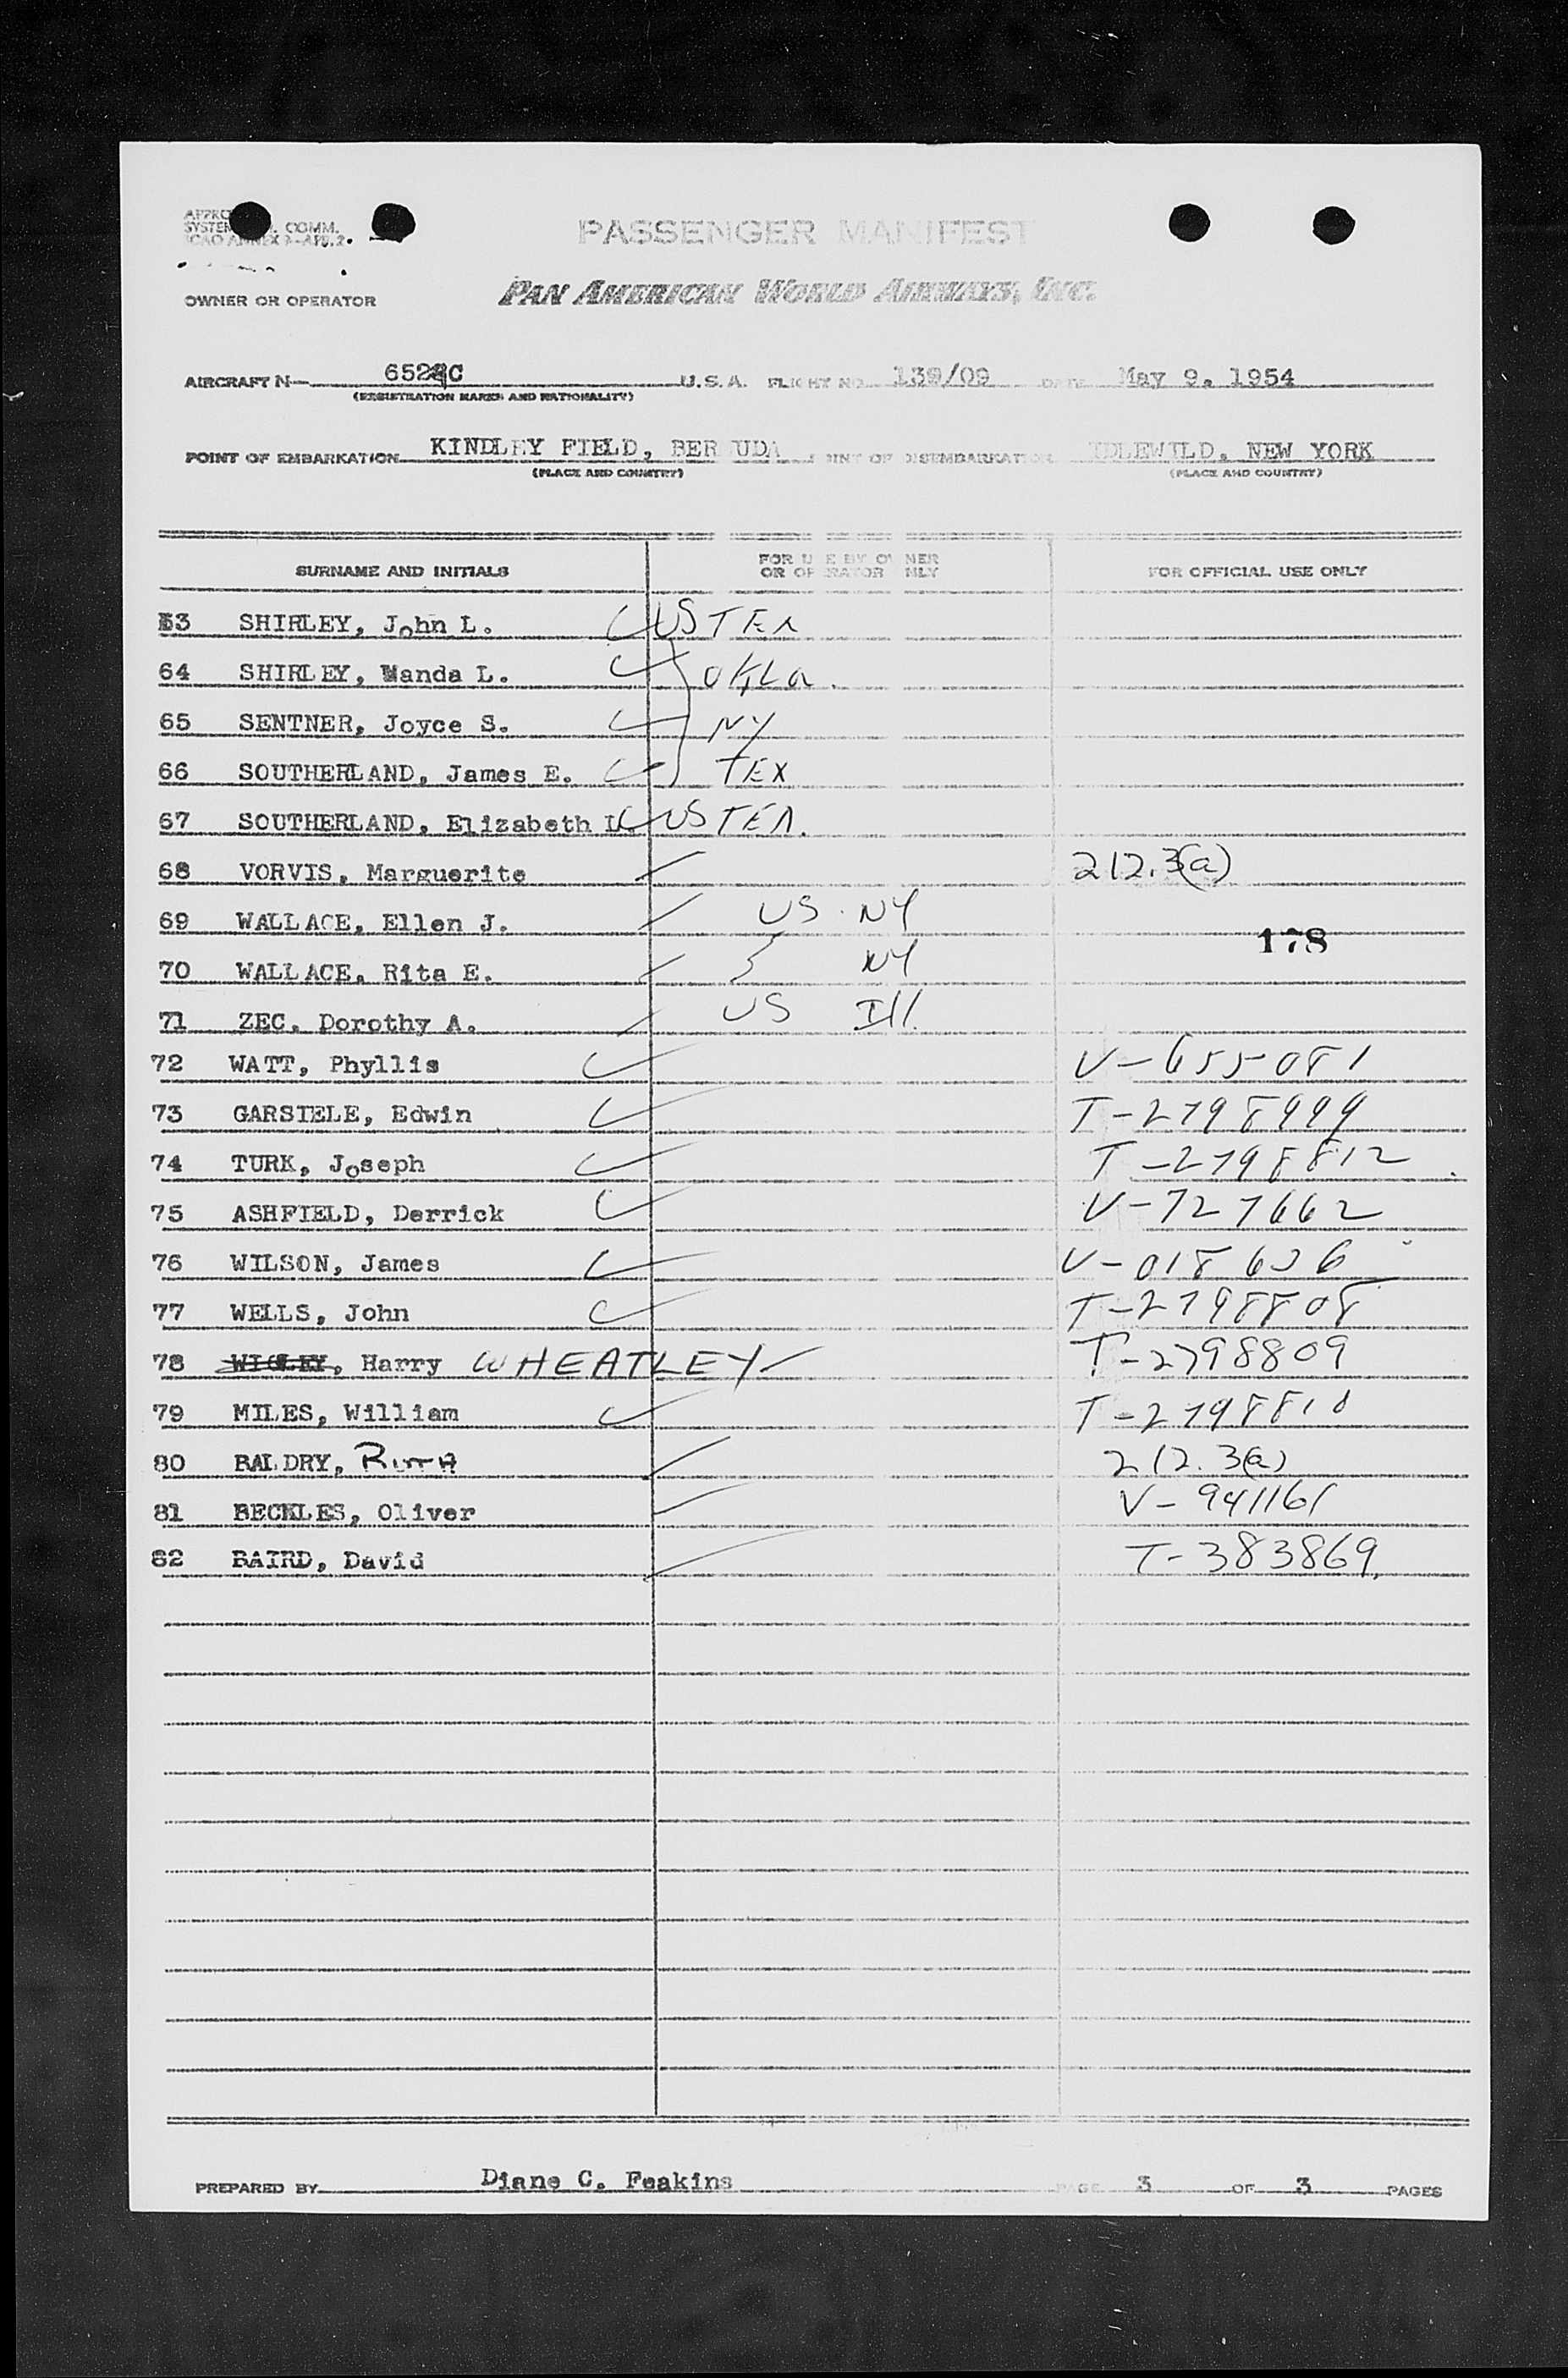 SYSTEM COMM.
ICAO ANNEX
PASSENGER MANIFEST
OWNER OR OPERATOR PAN AMERICAN WORLD AIRWAYS, INC.
AIRCRAFT N U.S.A. FLIGHT NO. 139/09 DATE May 9, 1954
(REGISTRATION MARKS AND NATIONALITY)
POINT OF EMBARKATION KINDLEY FIELD, BERMUDA POINT OF DISEMBARKATION IDLEWILD, NEW YORK
(PLACE AND COUNTRY) (PLACE AND COUNTRY)
SURNAME AND INITIALS FOR USE BY OWNER OR OPERATOR ONLY FOR OFFICIAL USE ONLY
63 SHIRLEY, John L. US TEX
64 SHIRLEY, Wanda L. OKLa.
65 SENTNER, Joyce S. NY
66 SOUTHERLAND, James E. TEX
67 SOUTHERLAND, Elizabeth L. US TEX.
68 VORVIS, Marguerite 212.3(a)
69 WALLACE, Ellen J. US NY
178
70 WALLACE, Rita E. NY
71 ZEC, Dorothy A. US Ill.
72 WATT, Phyllis V-655081
73 GARSIELE, Edwin T-2798999
74 TURK, Joseph T-2798812
75 ASHFIELD, Derrick V-727662
76 WILSON, James
77 WELLS, John T-2798808
78 WIGLEY, Harry WHEATLEY T-2798809
79 MILES, William T-2798810
80 BALDRY, RUTH 212.3(a)
81 BECKLES, Oliver V-941161
82 BAIRD, David T-383869.
PREPARED BY Diane C. Feakins PAGE 3 OF 3 PAGES